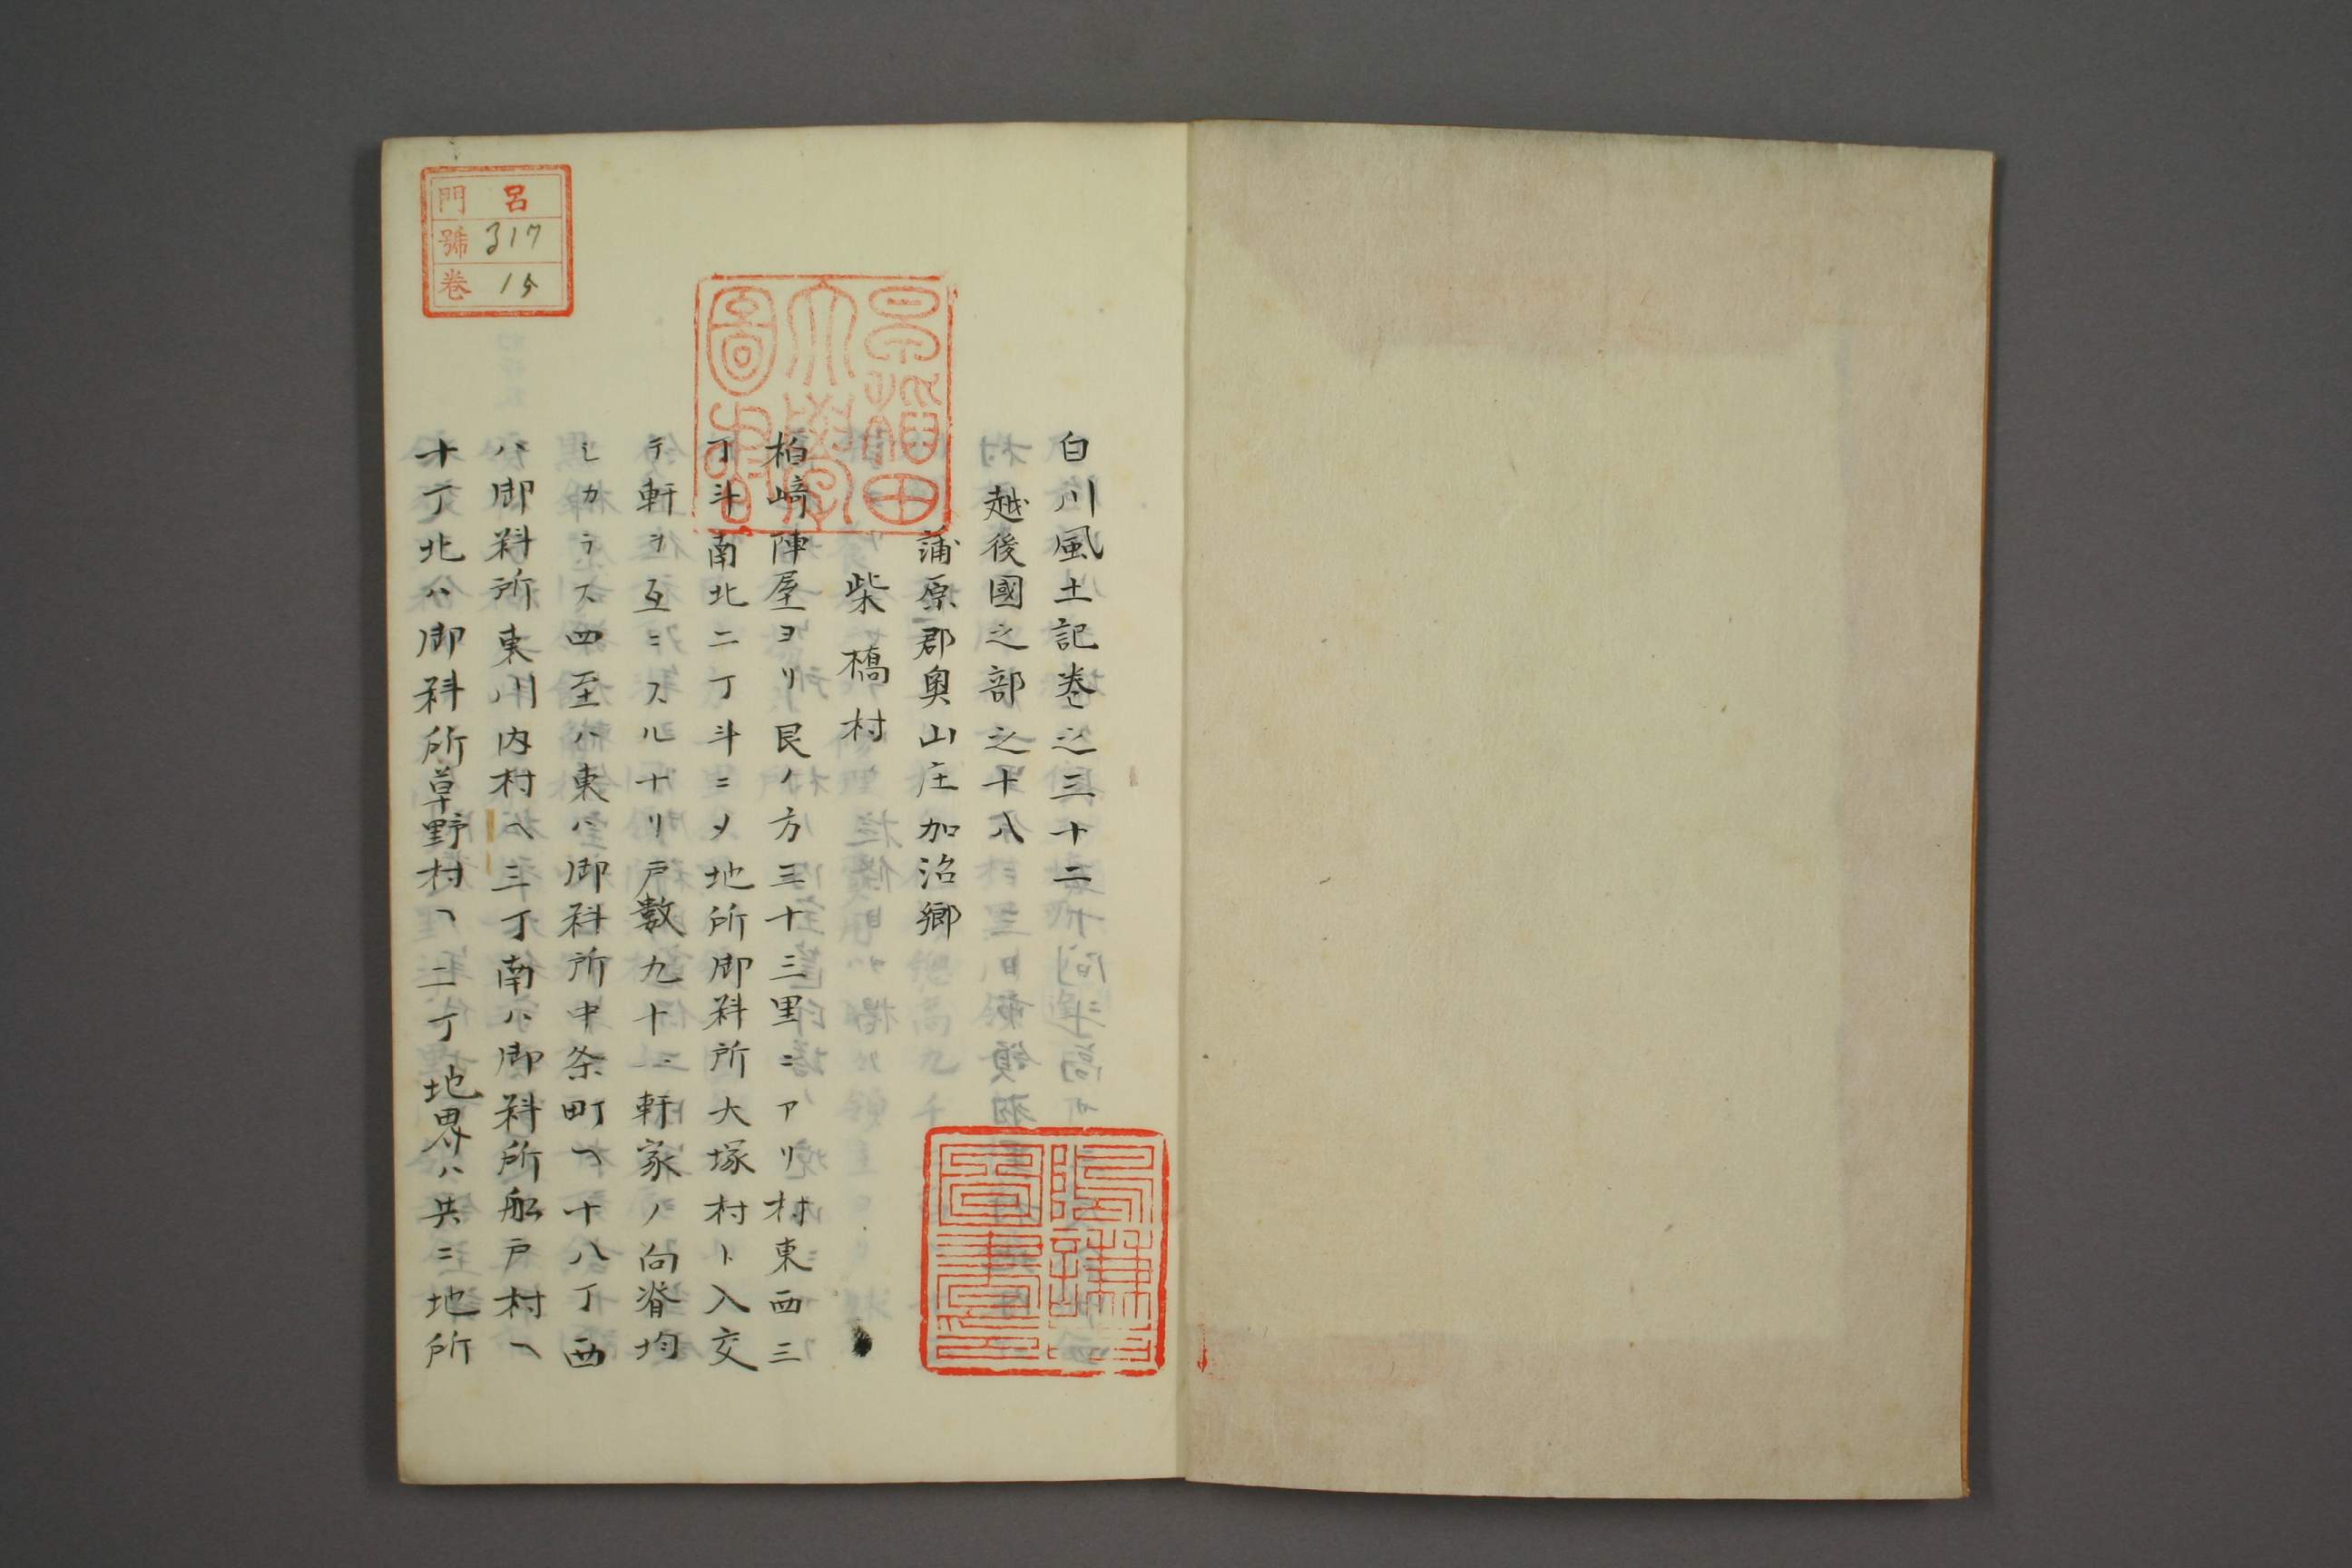 白川風土記巻之三十二
越後國之部之十八
蒲原郡奥山庄加治郷
柴橋村
柏﨑陣屋ヨリ艮ノ方三十三里ニアリ村東西三
丁斗南北二丁斗ニメ地所御料所大塚村ト入交
テ軒ヲ互ニスル十リ戸數九十二軒家ノ向脊均
シカラス四至ハ東ハ御料所中条町ヘ十八丁西
ハ御料所東川内村ヘ三丁南ハ御料所舩戸村ヘ
十丁北ハ御料所草野村ヘ二丁地界ハ共ニ地所
早稲田大學圖書
呂門
317號
15卷